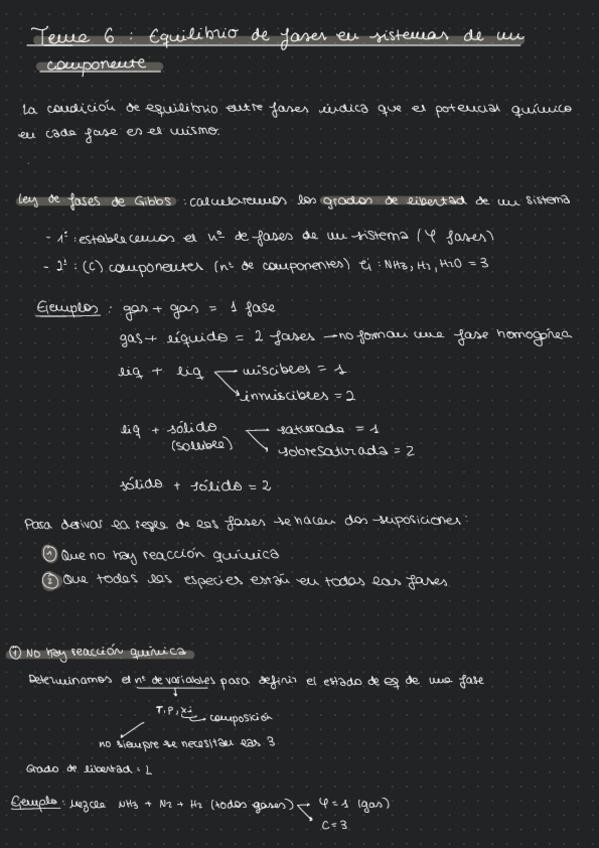 Tema 6 : Equilibrio de fases en sistemas de un
componente
La condición de equilibrio entre fases indica que el potencial químico
en cada fase es el mismo.
Ley de fases de Gibbs : calcularemos los grados de libertad de un sistema
- 1º : establecemos el nº de fases de un sistema (φ fases)
- 2º : (C) componentes (nº de componentes) Ej : NH3, H2, H2O = 3
Ejemplos : gas + gas = 1 fase
gas + líquido = 2 fases → no forman una fase homogénea
liq + liq → miscibles = 1
inmiscibles = 2
liq + sólido → saturada = 1
(soluble) sobresaturada = 2
sólido + sólido = 2
Para derivar la regla de las fases se hacen dos suposiciones:
① Que no hay reacción química
② Que todas las especies están en todas las fases
① No hay reacción química
Determinamos el nº de variables para definir el estado de eq de una fase
T, P, xi → composición
no siempre se necesitan las 3
Grado de libertad : L
Ejemplo : Mezcla NH3 + N2 + H2 (todos gases) → φ = 1 (gas)
C = 3